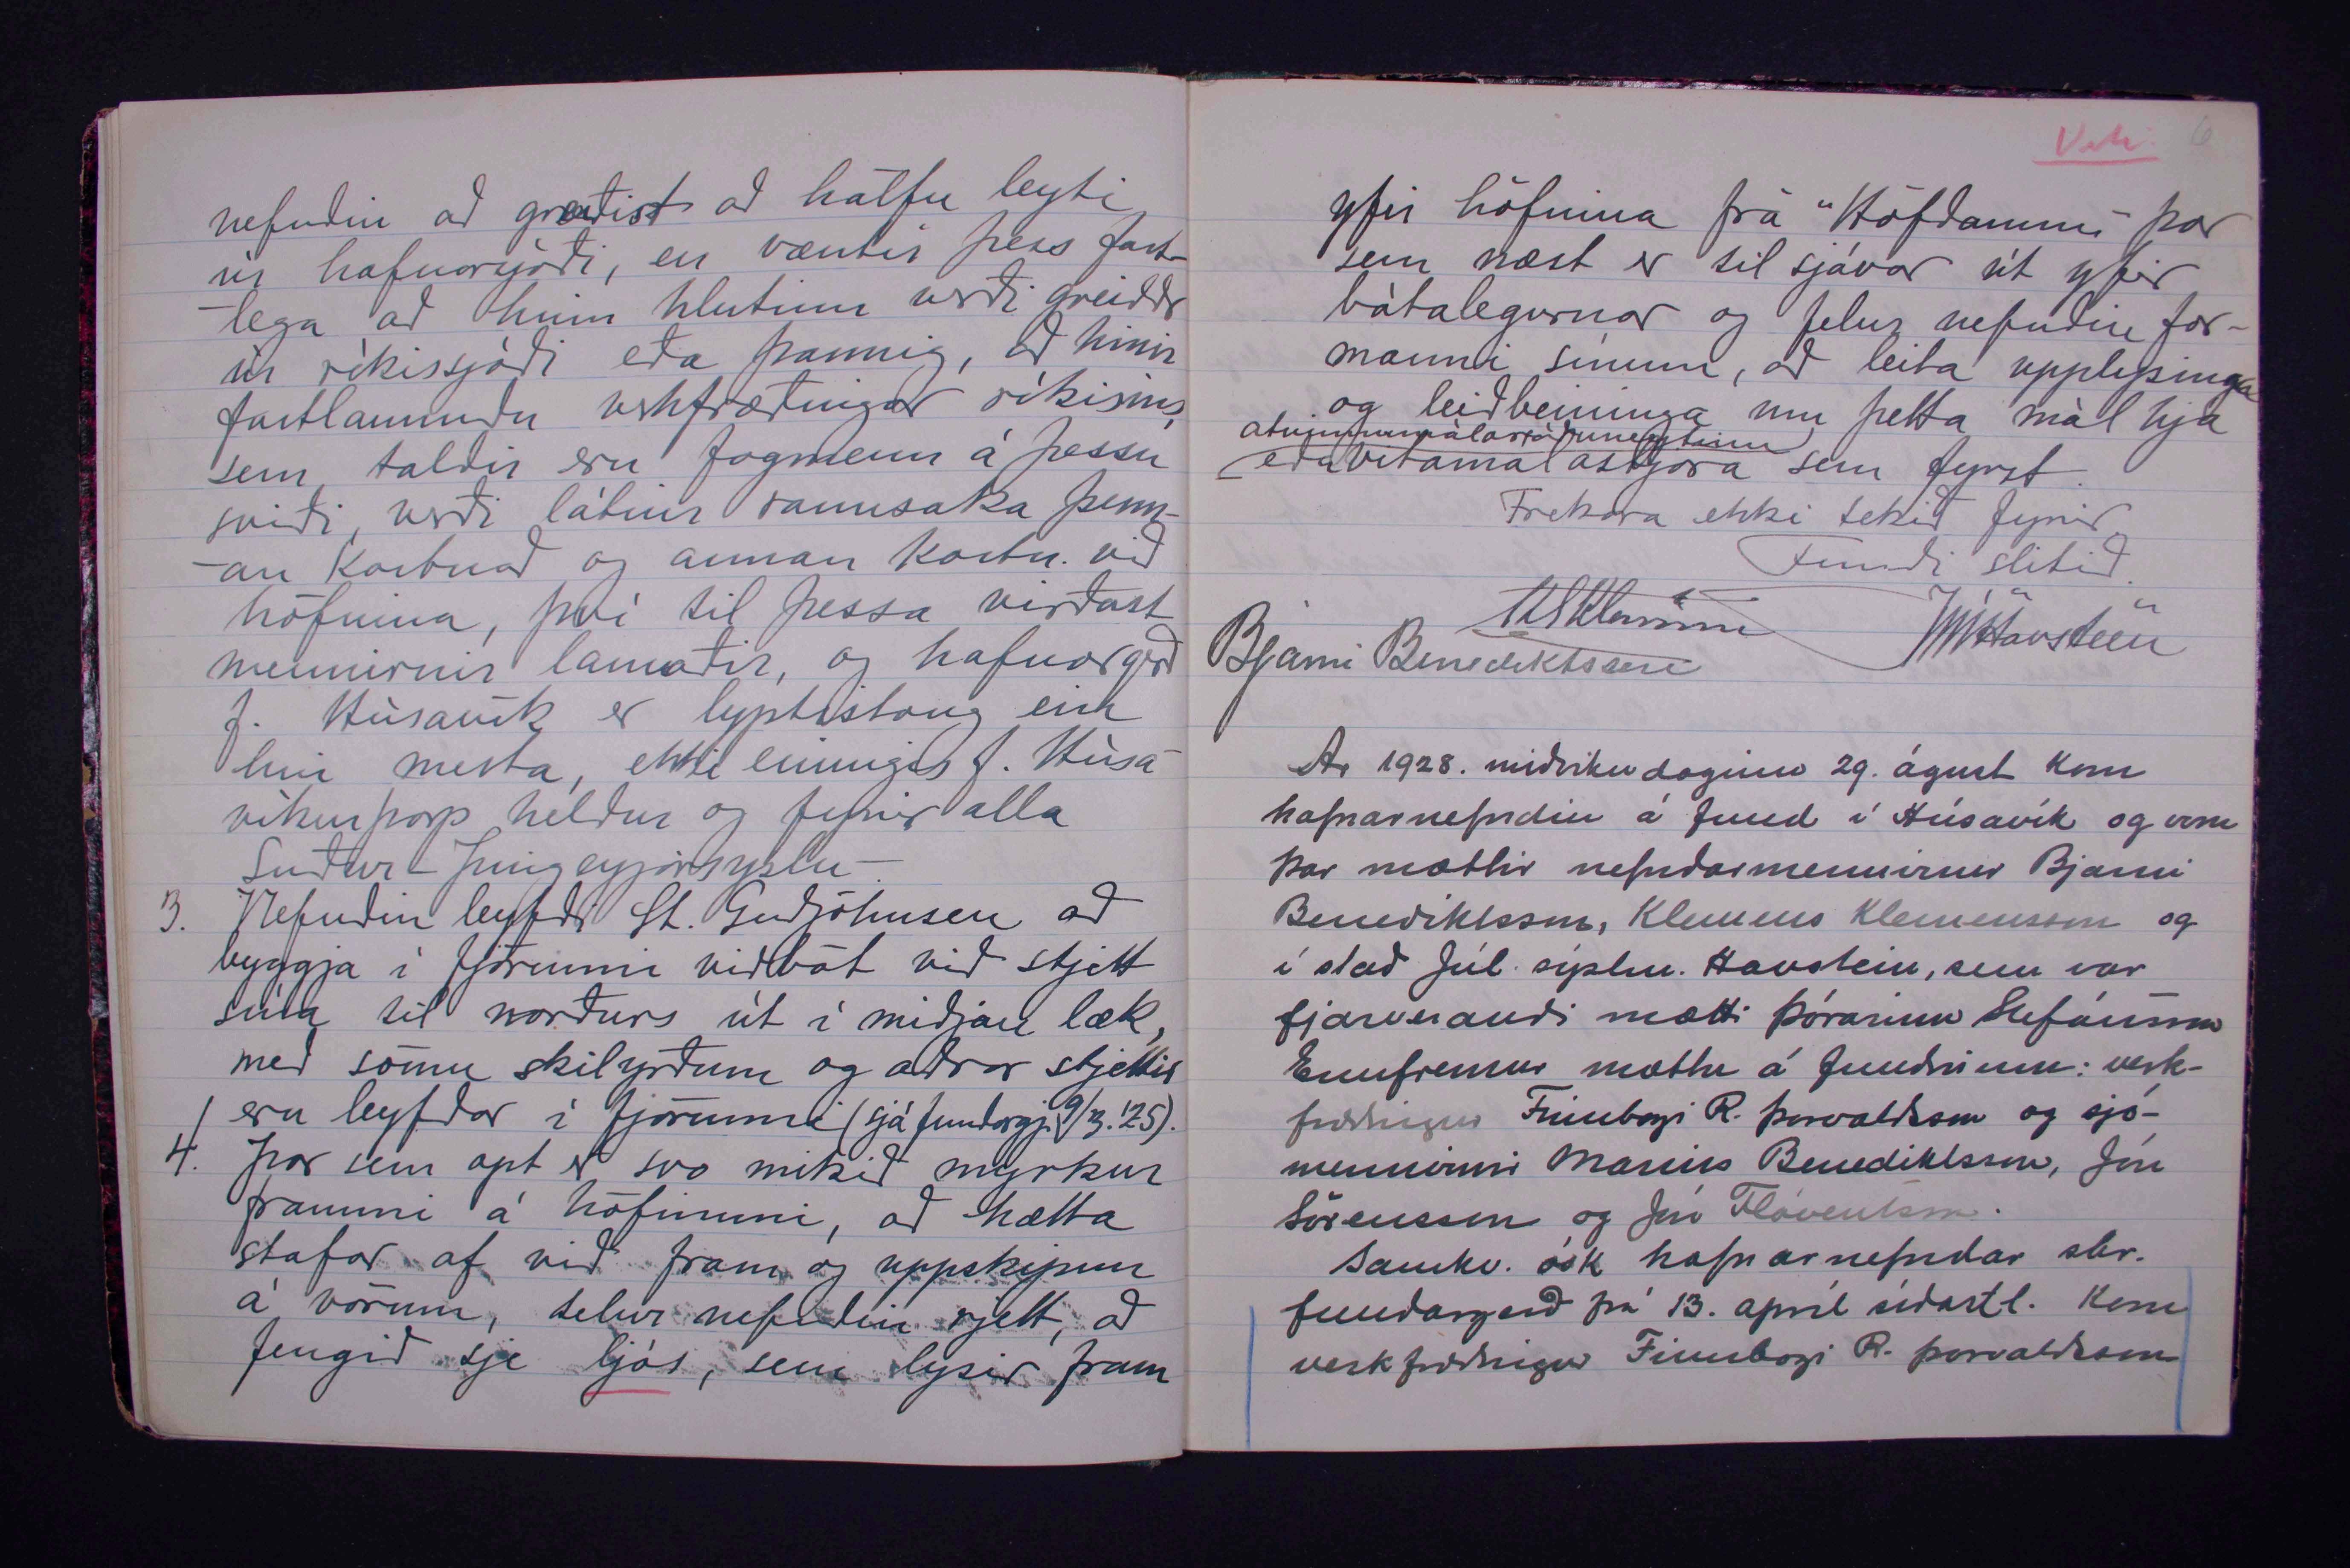 nefndin að greiðist að hálfu leyti
úr hafnarsjóði, en væntir þess fast-
-lega að hinn hlutinn verði greiddr
úr ríkissjóði eða þannig, að hinir
fastlaunuðu verkfræðingar ríkisins,
sem taldir eru fagmenn á þessu
sviði, verði látnir rannsaka þenn-
-an kostnað og annan kostn. við
höfnina, því til þessa virðast
mennirnir lamaðir, og hafnargerð
f. Húsavík er lyptistöng ein
hin mesta, ekki einungis f. Húsa-
víkurþorp heldur og fyrir alla
Suður-Þingeyjarsýslu-
3. Nefndin leyfði St. Guðjohnsen að
byggja í fjörunni viðbót við stjett
sína til norðurs út í miðjan læk,
með sömu skilyrðum og aðrar stjettir
eru leyfðar í fjörunni (sjá fundargj. 9/3.'25).
4. Þar sem opt er svo mikið myrkur
frammi á höfninni, að hætta
stafar af við fram og uppskipun
á vörum, telur nefndin rjett, að
fengið sje ljós, sem lýsir fram
6
yfir höfnina frá "Höfðanum" þar
sem næst er til sjávar út yfir
bátalegurnar og felur nefndin for-
manni sínum, að leita upplýsinga
og leiðbeininga um þetta mál hjá
atvinnumálaráðuneytinu
eða vitamálastjóra sem fyrst.
Frekara ekki tekið fyrir
Fundi slitið.
Kl Klemensson
JúlHavsteen
Bjarni Benediktsson
Ár 1928. miðvikudaginn 29. ágúst kom
hafnarnefndin á fund í Húsavík og voru
þar mættir nefndarmennirnir Bjarni
Benediktsson, Klemens Klemensson og
í stað Júl. sýslm. Havstein, sem var
fjarverandi mætti Þórarinn Stefánsson
Ennfremur mættu á fundinum: verk-
fræðingur Finnbogi R. Þorvaldsson og sjó-
mennirnir Maríus Benediktsson, Jón
Sörensson og Jón Flóventsson.
Samkv. ósk hafnarnefndar sbr.
fundargerð frá 13. apríl síðastl. kom
verkfræðingur Finnbogi R. Þorvaldsson